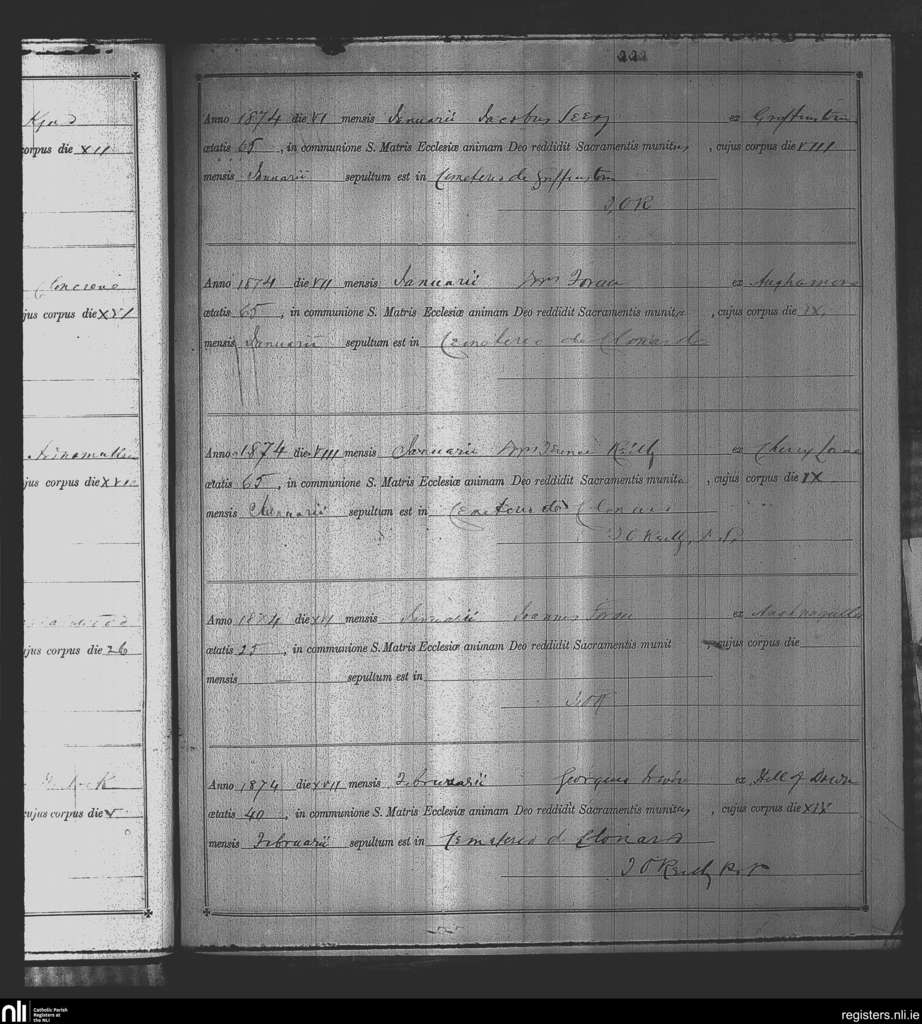 222
Kjord
corpus die XII
Cloncrene
jus corpus die XVI
jus corpus die XVI
ujus corpus die 26
Rock
cujus corpus die V
Anno 1874 die VI mensis Januarii Jacobus Seery ex Griffinstown
ætatis 65, in communione S. Matris Ecclesiæ animam Deo reddidit Sacramentis munitus, cujus corpus die VIII
mensis Januarii sepultum est in Cemeterio de Griffinstown
J, OR
Anno 1874 die VII mensis Januarii Mrs Foran ex Aughamore
ætatis 65, in communione S. Matris Ecclesiæ animam Deo reddidit Sacramentis munita, cujus corpus die IX,
mensis Januarii sepultum est in Cemeterio de Clonardo
Anno 1874 die VIII mensis Januarii Mrs Reilly ex Cherry
ætatis 65, in communione S. Matris Ecclesiæ animam Deo reddidit Sacramentis munita, cujus corpus die IX
mensis Januarii sepultum est in
J O Reilly, P. P.
Anno 1874 die XVI mensis Januarii Joannes ex
ætatis 25, in communione S. Matris Ecclesiæ animam Deo reddidit Sacramentis munit , cujus corpus die
mensis sepultum est in
J. O R
Anno 1874 die XVII mensis Februarii Georgius Irwin ex Hill of Down
ætatis 40, in communione S. Matris Ecclesiæ animam Deo reddidit Sacramentis munitus, cujus corpus die XIX
mensis Februarii sepultum est in Cemeterio d Clonard
J O Reilly P. P
nli Catholic Parish
Registers at
the NLI
registers.nli.ie